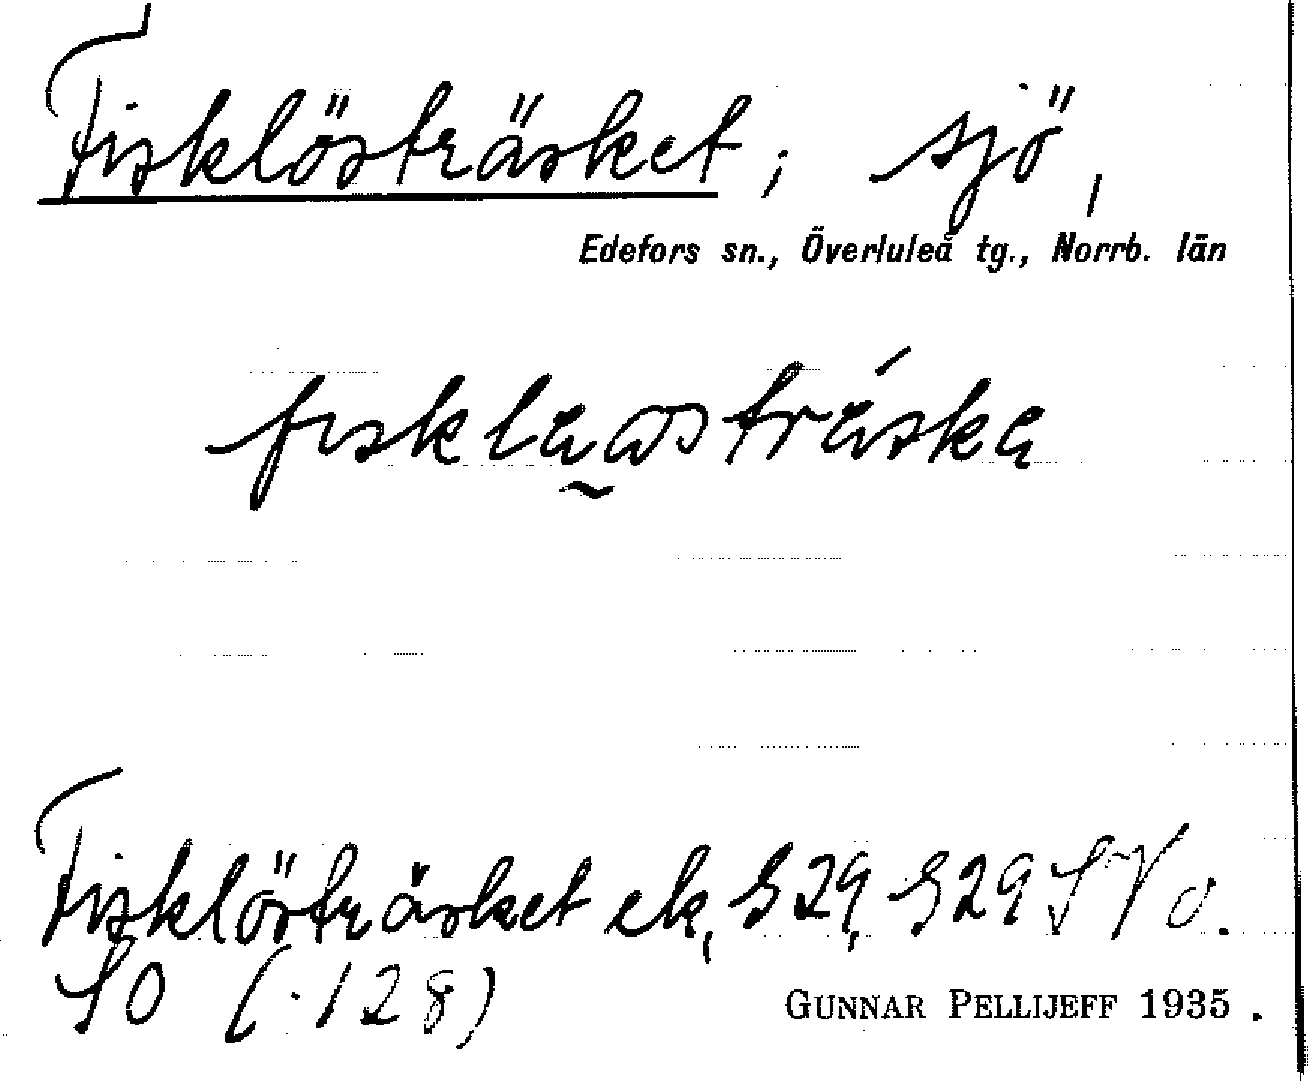 Fisklösträsket; sjö,
Edefors sn., Överluleå tg., Norrb. län
fisklaosträska
Fisklösträsket ek, S 29, S 29 SV o.
SO (·128)
GUNNAR PELLIJEFF 1935.